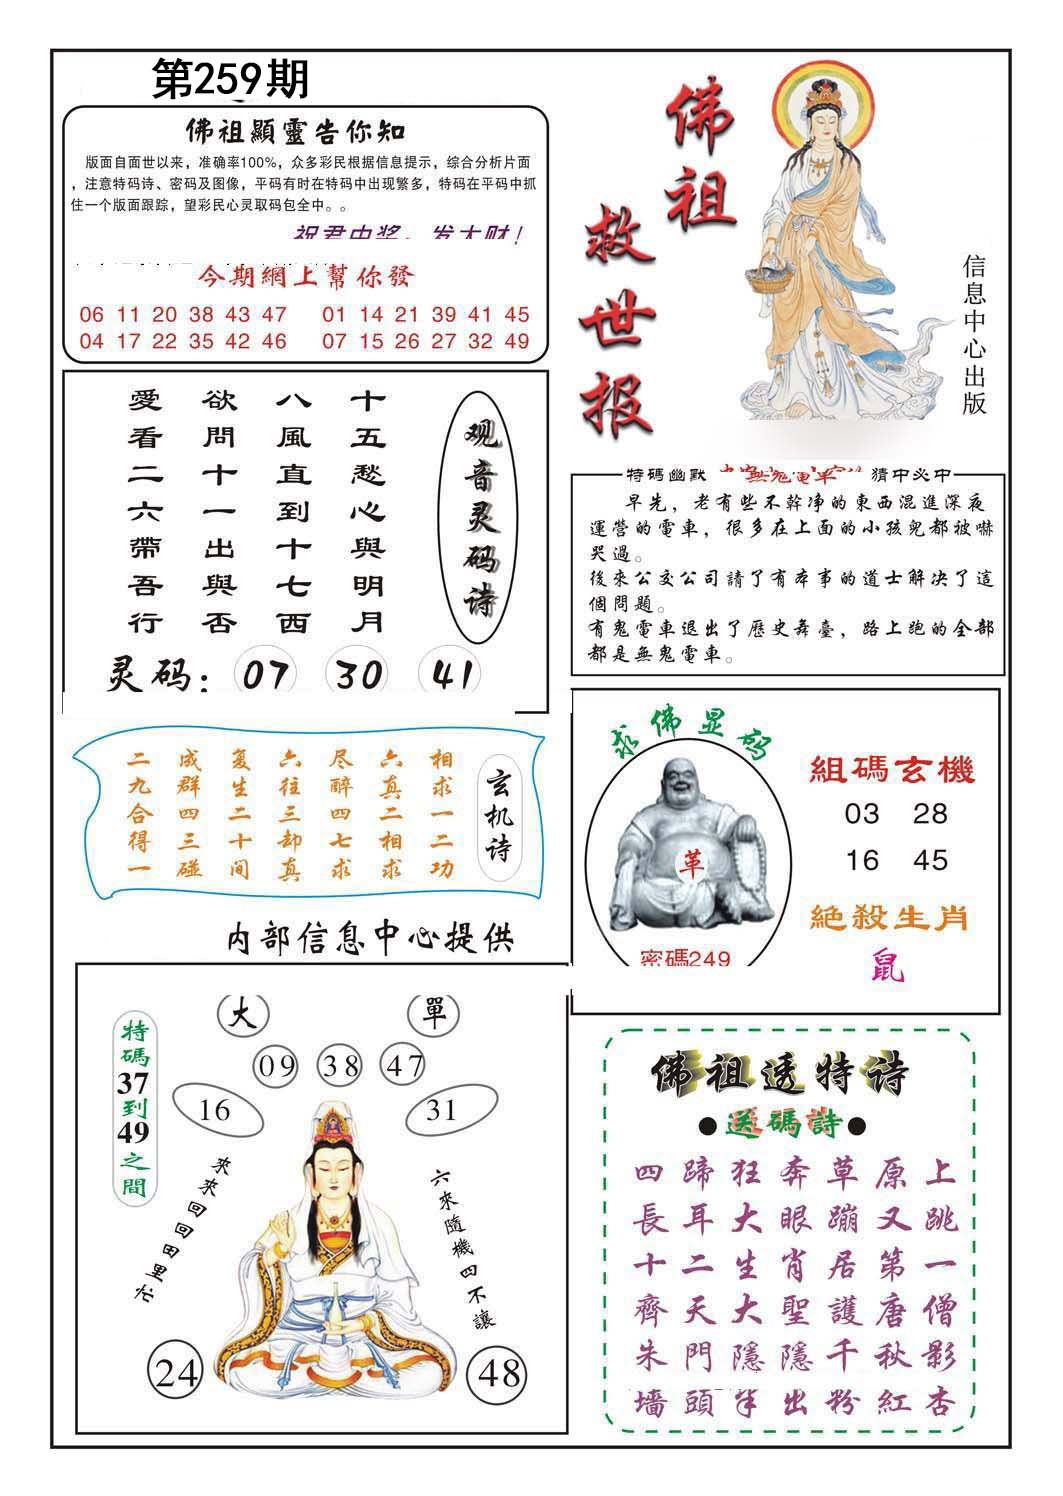 第259期
佛祖顯靈告你知
版面自面世以来，准确率100%，众多彩民根据信息提示，综合分析片面
，注意特码诗、密码及图像，平码有时在特码中出现繁多，特码在平码中抓
住一个版面跟踪，望彩民心灵取码包全中。。
祝君中奖，发大财！
今期網上幫你發
06 11 20 38 43 47 01 14 21 39 41 45
04 17 22 35 42 46 07 15 26 27 32 49
佛祖
救世报
信息中心出版
观音灵码诗
十五愁心與明月
八風直到十七西
欲問十一出與否
愛看二六帶吾行
灵码：07 30 41
特碼幽默 無鬼電車 猜中必中
早先，老有些不幹净的東西混進深夜
運营的電車，很多在上面的小孩兒都被嚇
哭過。
後來公交公司請了有本事的道士解决了這
個問題。
有鬼電車退出了歷史舞臺，路上跑的全部
都是無鬼電車。
玄机诗
相求一二功
六真二相求
尽醉四七求
六往三却真
复生二十间
成群四三碰
二九合得一
内部信息中心提供
求佛显码
革
密碼249
組碼玄機
03 28
16 45
絕殺生肖
鼠
大 單
09 38 47
16 31
特碼37到49之間
來來回回田里忙
六來隨機四不讓
24 48
佛祖透特诗
●送碼詩●
四蹄狂奔草原上
長耳大眼蹦又跳
十二生肖居第一
齊天大聖護唐僧
朱門隱隱千秋影
墻頭半出粉紅杏